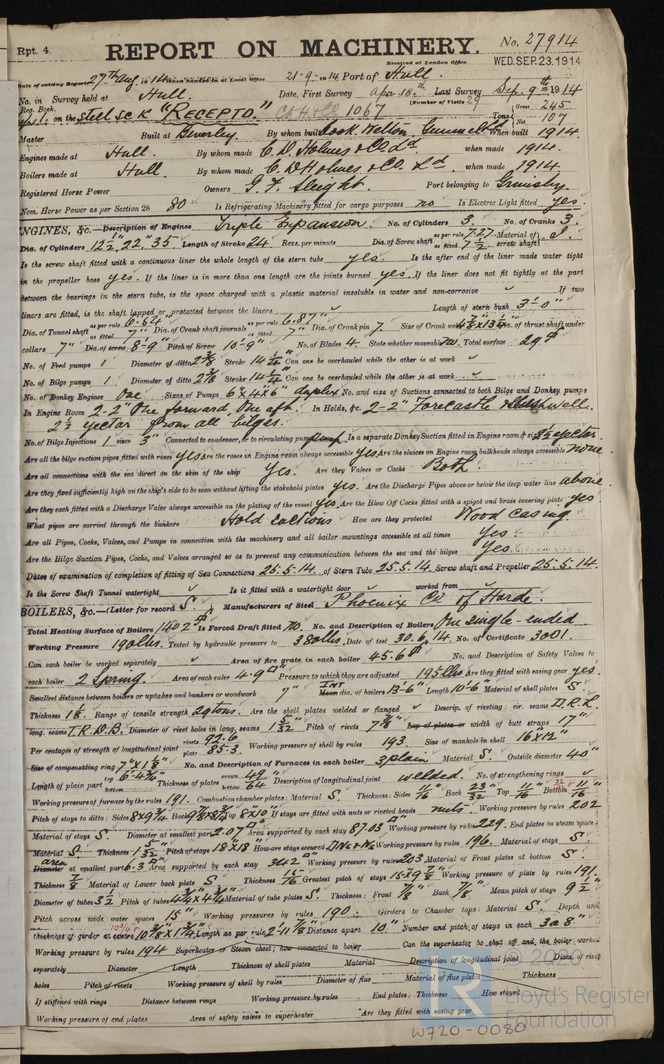 Rpt. 4.
REPORT ON MACHINERY.
No. 27914
Received at London Office
WED. SEP. 23. 1914
Date of writing Report 27th Aug. 1914 When handed in at Local Office 21-9-1914 Port of Hull.
No. in Survey held at Hull. Date, First Survey Apr. 18th Last Survey Sep. 9th 1914
Reg. Book. (Number of Visits 29
on the steel sc k "RECEPTO." 1067 Tons Gross 245 Net 107
Master Built at Beverley. By whom built Cook, Welton, Gemmell When built 1914.
Engines made at Hull. By whom made C. D. Holmes & Co Ld. when made 1914.
Boilers made at Hull. By whom made C. D Holmes & Co. Ld. when made 1914.
Registered Horse Power Owners G. F. Sleight. Port belonging to Grimsby.
Nom. Horse Power as per Section 28 80 Is Refrigerating Machinery fitted for cargo purposes no Is Electric Light fitted yes
ENGINES, &c.—Description of Engines Triple Expansion. No. of Cylinders 3. No. of Cranks 3.
Dia. of Cylinders 12½", 22", 35" Length of Stroke 24 Revs. per minute Dia. of Screw shaft as per rule 7.27 as fitted 7½" Material of screw shaft) I.
Is the screw shaft fitted with a continuous liner the whole length of the stern tube yes Is the after end of the liner made water tight
in the propeller boss yes. If the liner is in more than one length are the joints burned yes. If the liner does not fit tightly at the part
between the bearings in the stern tube, is the space charged with a plastic material insoluble in water and non-corrosive ✓ If two
liners are fitted, is the shaft lapped or protected between the liners Length of stern bush 3'-0"
Dia. of Tunnel shaft as per rule 6.54 as fitted 7" Dia. of Crank shaft journals as per rule 6.87" as fitted 7" Dia. of Crank pin 7" Size of Crank webs Dia. of thrust shaft under
collars 7" Dia. of screw 8'-9" Pitch of Screw 10'-9" No. of Blades 4. State whether moveable No. Total surface 29
No. of Feed pumps 1 Diameter of ditto 2⅜ Stroke 14¼" Can one be overhauled while the other is at work ✓
No. of Bilge pumps 1 Diameter of ditto 2⅜ Stroke 14¼" Can one be overhauled while the other is at work ✓
No. of Donkey Engines One Sizes of Pumps 6"x4"x6" duplex No. and size of Suctions connected to both Bilge and Donkey pumps
In Engine Room 2-2" One forward, One aft. In Holds, &c. 2-2" Forecastle & slushwell.
2½" ejector from all bilges.
No. of Bilge Injections 1 sizes 3" Connected to condenser, or to circulating pump pump. Is a separate Donkey Suction fitted in Engine room & size 2½" ejector.
Are all the bilge suction pipes fitted with roses yes Are the roses in Engine room always accessible yes Are the sluices on Engine room bulkheads always accessible none.
Are all connections with the sea direct on the skin of the ship Yes. Are they Valves or Cocks Both.
Are they fixed sufficiently high on the ship's side to be seen without lifting the stokehold plates yes. Are the Discharge Pipes above or below the deep water line above.
Are they each fitted with a Discharge Valve always accessible on the plating of the vessel yes Are the Blow Off Cocks fitted with a spigot and brass covering plate yes
What pipes are carried through the bunkers Hold suctions How are they protected Wood casing.
Are all Pipes, Cocks, Valves, and Pumps in connection with the machinery and all boiler mountings accessible at all times Yes.
Are the Bilge Suction Pipes, Cocks, and Valves arranged so as to prevent any communication between the sea and the bilges Yes.
Dates of examination of completion of fitting of Sea Connections 25.5.14. of Stern Tube 25.5.14. Screw shaft and Propeller 25.5.14.
Is the Screw Shaft Tunnel watertight ✓ Is it fitted with a watertight door ✓ worked from ✓
BOILERS, &c.—(Letter for record S.) Manufacturers of Steel Phoenix Co of Horde.
Total Heating Surface of Boilers 1402 Is Forced Draft fitted No. No. and Description of Boilers One single-ended
Working Pressure 190lbs. Tested by hydraulic pressure to 380lbs. Date of test 30.6.14. No. of Certificate 3001.
Can each boiler be worked separately ✓ Area of fire grate in each boiler 45.6 No. and Description of Safety Valves to
each boiler 2 Spring. Area of each valve 4.9 Pressure to which they are adjusted 195lbs Are they fitted with easing gear yes.
Smallest distance between boilers or uptakes and bunkers or woodwork 7" INT dia. of boilers 13'-6" Length 10'-6" Material of shell plates S.
Thickness 1⅛ Range of tensile strength 29 tons. Are the shell plates welded or flanged ✓ Descrip. of riveting: cir. seams D.R.L.
long. seams T.R.D.B. Diameter of rivet holes in long. seams 1 5/32 Pitch of rivets 7⅞" Lap of plates or width of butt straps 17"
Per centages of strength of longitudinal joint rivets 92.6 plate 85.3 Working pressure of shell by rules 193. Size of manhole in shell 16"x12"
Size of compensating ring 7"x1⅛" No. and Description of Furnaces in each boiler 3 plain Material S. Outside diameter 40"
Length of plain part top 6'-4¾" bottom Thickness of plates crown 49/64 bottom Description of longitudinal joint welded. No. of strengthening rings ✓
Working pressure of furnace by the rules 191. Combustion chamber plates: Material S. Thickness: Sides 11/16 Back 23/32 Top 11/16 Bottom 11/16
Pitch of stays to ditto: Sides 8x9¼ Back Top 8"x10" If stays are fitted with nuts or riveted heads nuts. Working pressure by rules 202
Material of stays S. Diameter at smallest part 2.07 Area supported by each stay 87.03 Working pressure by rules 229. End plates in steam space:
Material S. Thickness 1 5/32 Pitch of stays 18"x18" How are stays secured Working pressure by rules 196. Material of stays S.
area at smallest part 6.3 Area supported by each stay 342 Working pressure by rules 203 Material of Front plates at bottom S.
Thickness ⅞ Material of Lower back plate S Thickness 15/16 Greatest pitch of stays Working pressure of plate by rules 191.
Diameter of tubes 3½ Pitch of tubes 4¾"x4¾ Material of tube plates S. Thickness: Front ⅞" Back ⅞" Mean pitch of stays 9½"
Pitch across wide water spaces 15" Working pressures by rules 190. Girders to Chamber tops: Material S. Depth and
thickness of girder at centre Length as per rule 2'-11⅞" Distance apart 10" Number and pitch of stays in each 3 a 8"
Working pressure by rules 194 Superheater or Steam chest; how connected to boiler Can the superheater be shut off and the boiler worked
separately Diameter Length Thickness of shell plates Material Description of longitudinal joint Diam. of rivet
holes Pitch of rivets Working pressure of shell by rules Diameter of flue Material of flue plates Thickness
If stiffened with rings Distance between rings Working pressure by rules End plates: Thickness How stayed
Working pressure of end plates Area of safety valves to superheater Are they fitted with easing gear
© 2020
Lloyd's Register
Foundation
W720-0080